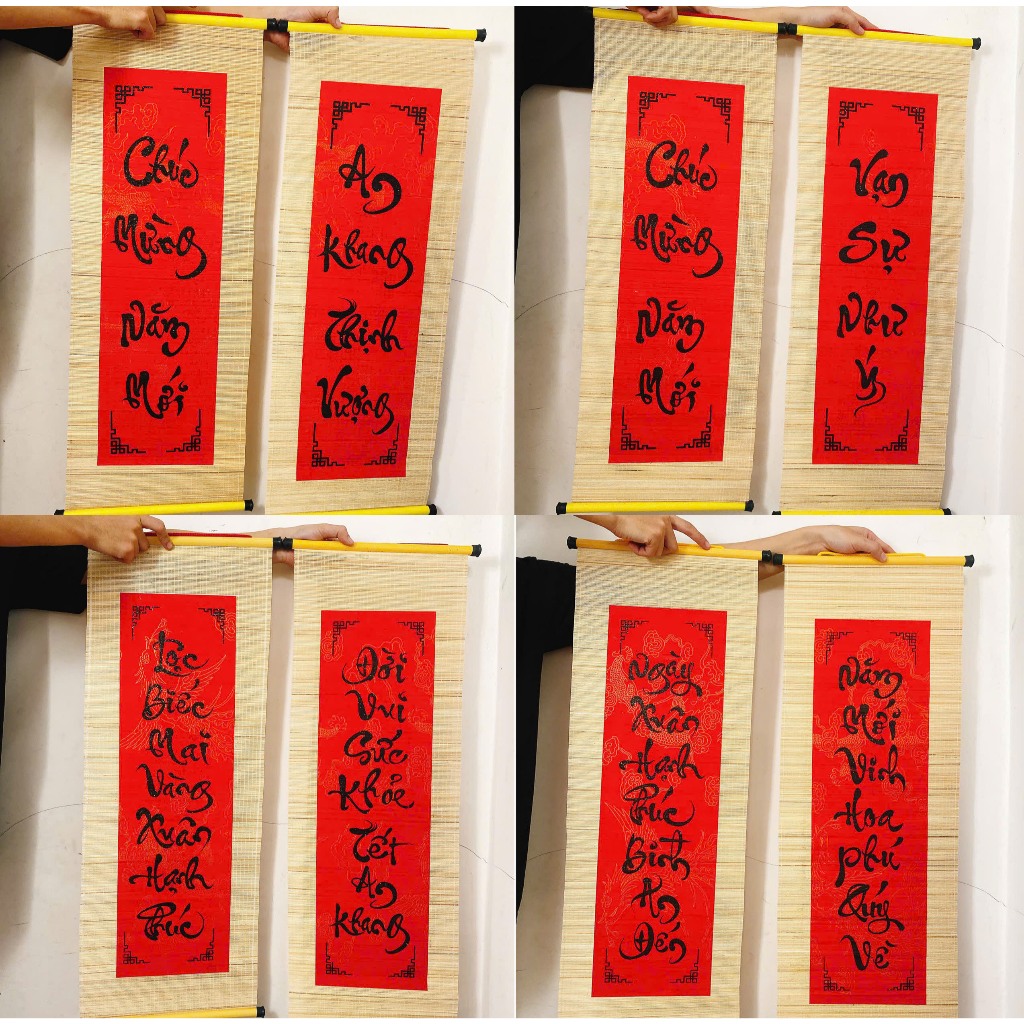 Chúc
Mừng
Năm
Mới
An
Khang
Thịnh
Vượng
Chúc
Mừng
Năm
Mới
Vạn
Sự
Như
Ý
Lộc
Biếc
Mai
Vàng
Xuân
Hạnh
Phúc
Đời
Vui
Sức
Khỏe
Tết
An
Khang
Ngày
Xuân
Hạnh
Phúc
Bình
An
Đến
Năm
Mới
Vinh
Hoa
Phú
Quý
Về